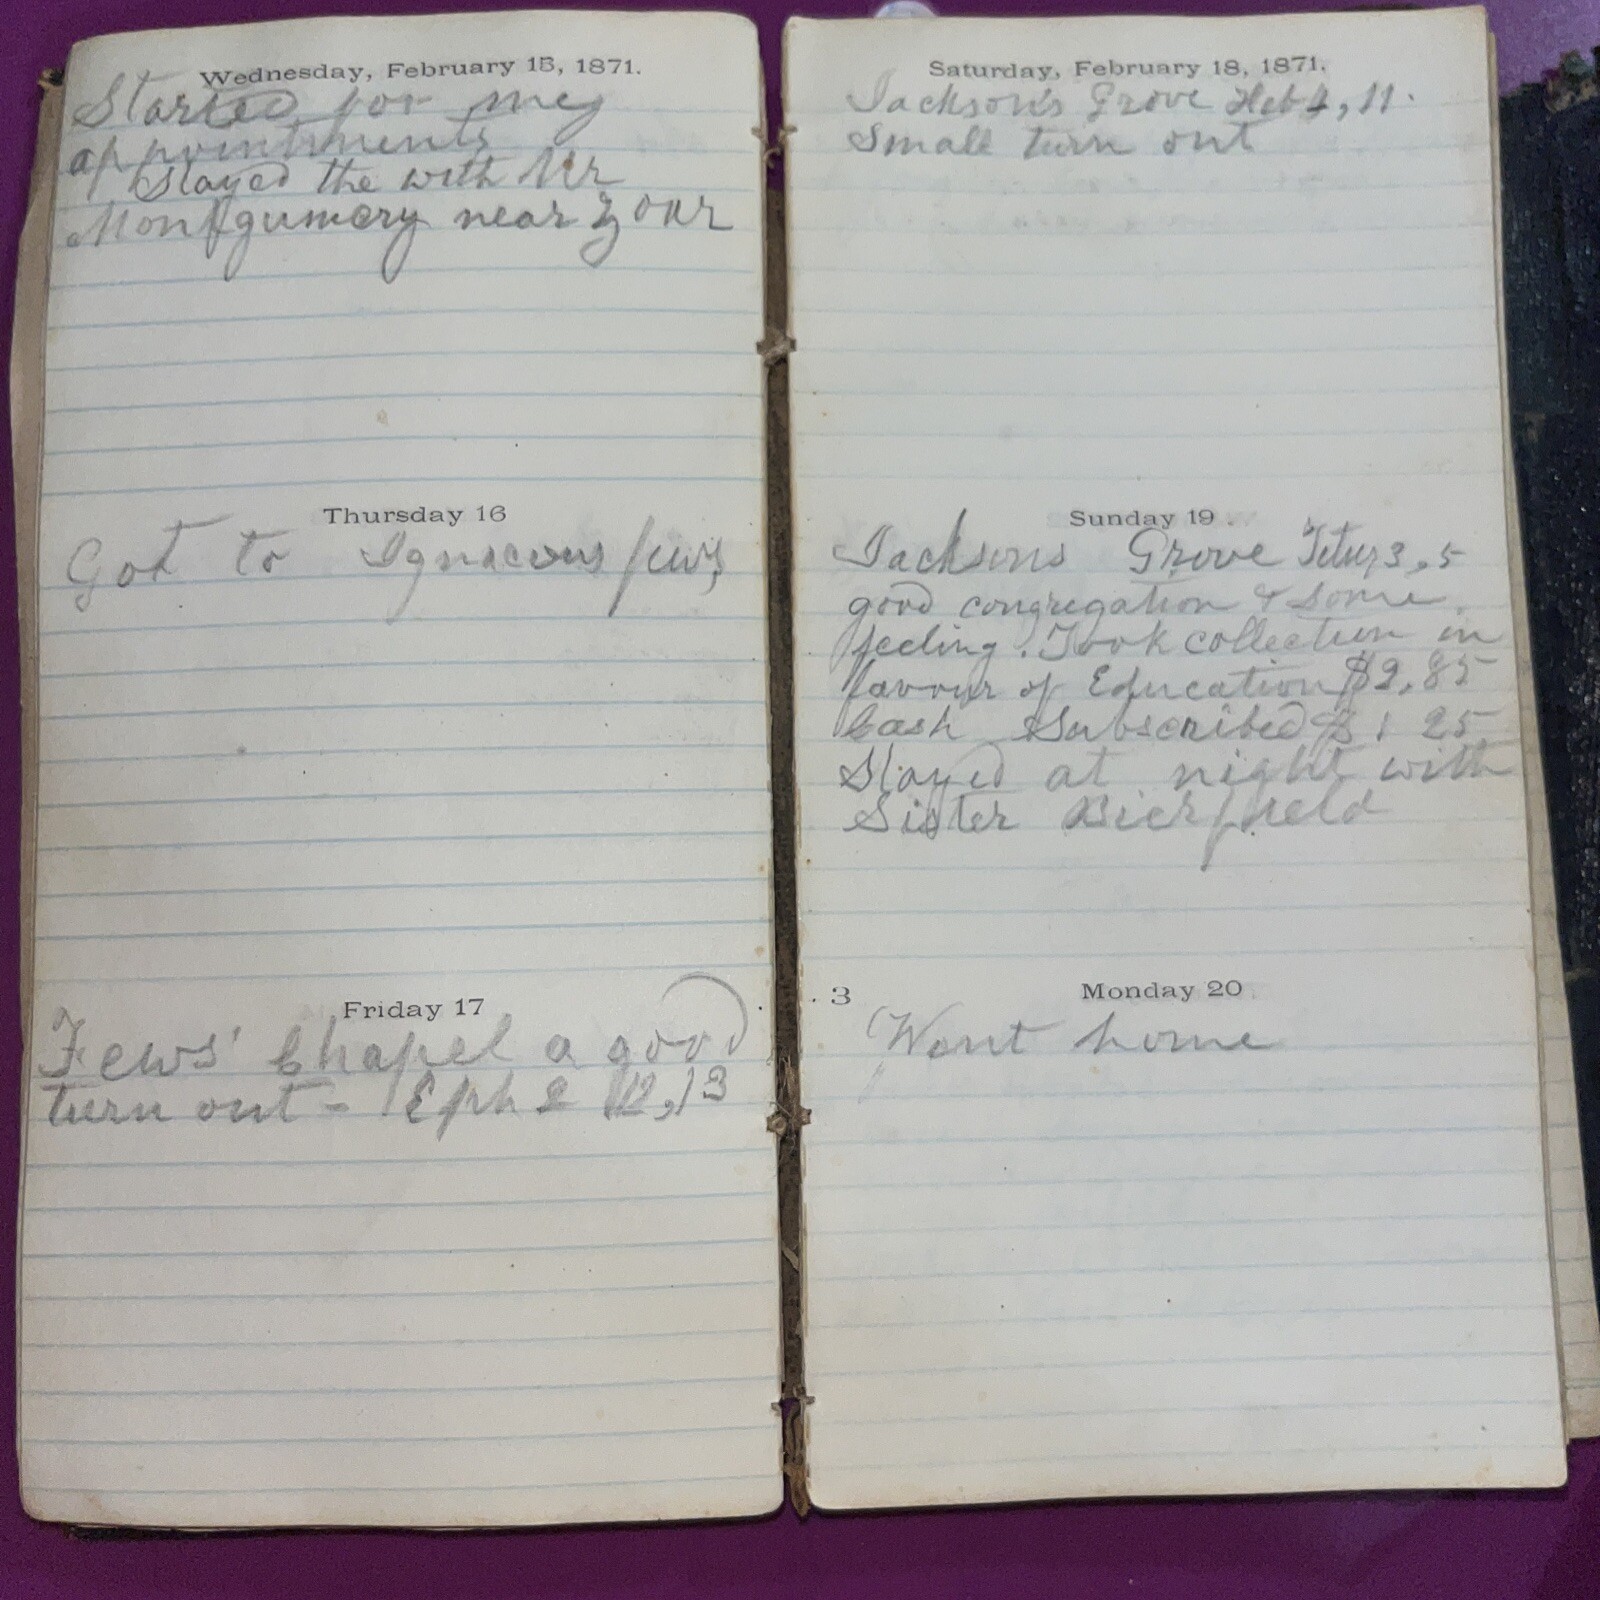 Wednesday, February 15, 1871.
Started for my
appointments
Stayed the with Mr
Montgumery near Zoar
Thursday 16
Got to Ignacous fews
Friday 17
Fews' Chapel a good
turn out - Eph 2 12,13
Saturday, February 18, 1871.
Jackson's Grove Heb 4, 11.
Small turn out
Sunday 19
Jacksons Grove Titus 3, 5
good congregation & some
feeling. Took collection in
favour of Education $2,85
Cash Subscribed $1 25
Stayed at night with
Sister Bierfield
3
Monday 20
Went home